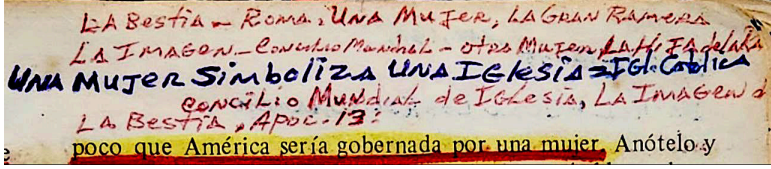 LA BESTIA - ROMA, UNA MUJER, LA GRAN RAMERA
LA IMAGEN - Concilio Mundial - otra Mujer, LA HIJA de la
UNA MUJER SimboLizA UNA IGlesia = IGl. CatoLica
CONCILIO MUNDIAL de IGLesia, LA IMAGEN d
LA BesTia, Apoc. 13:
e poco que América sería gobernada por una mujer. Anótelo y